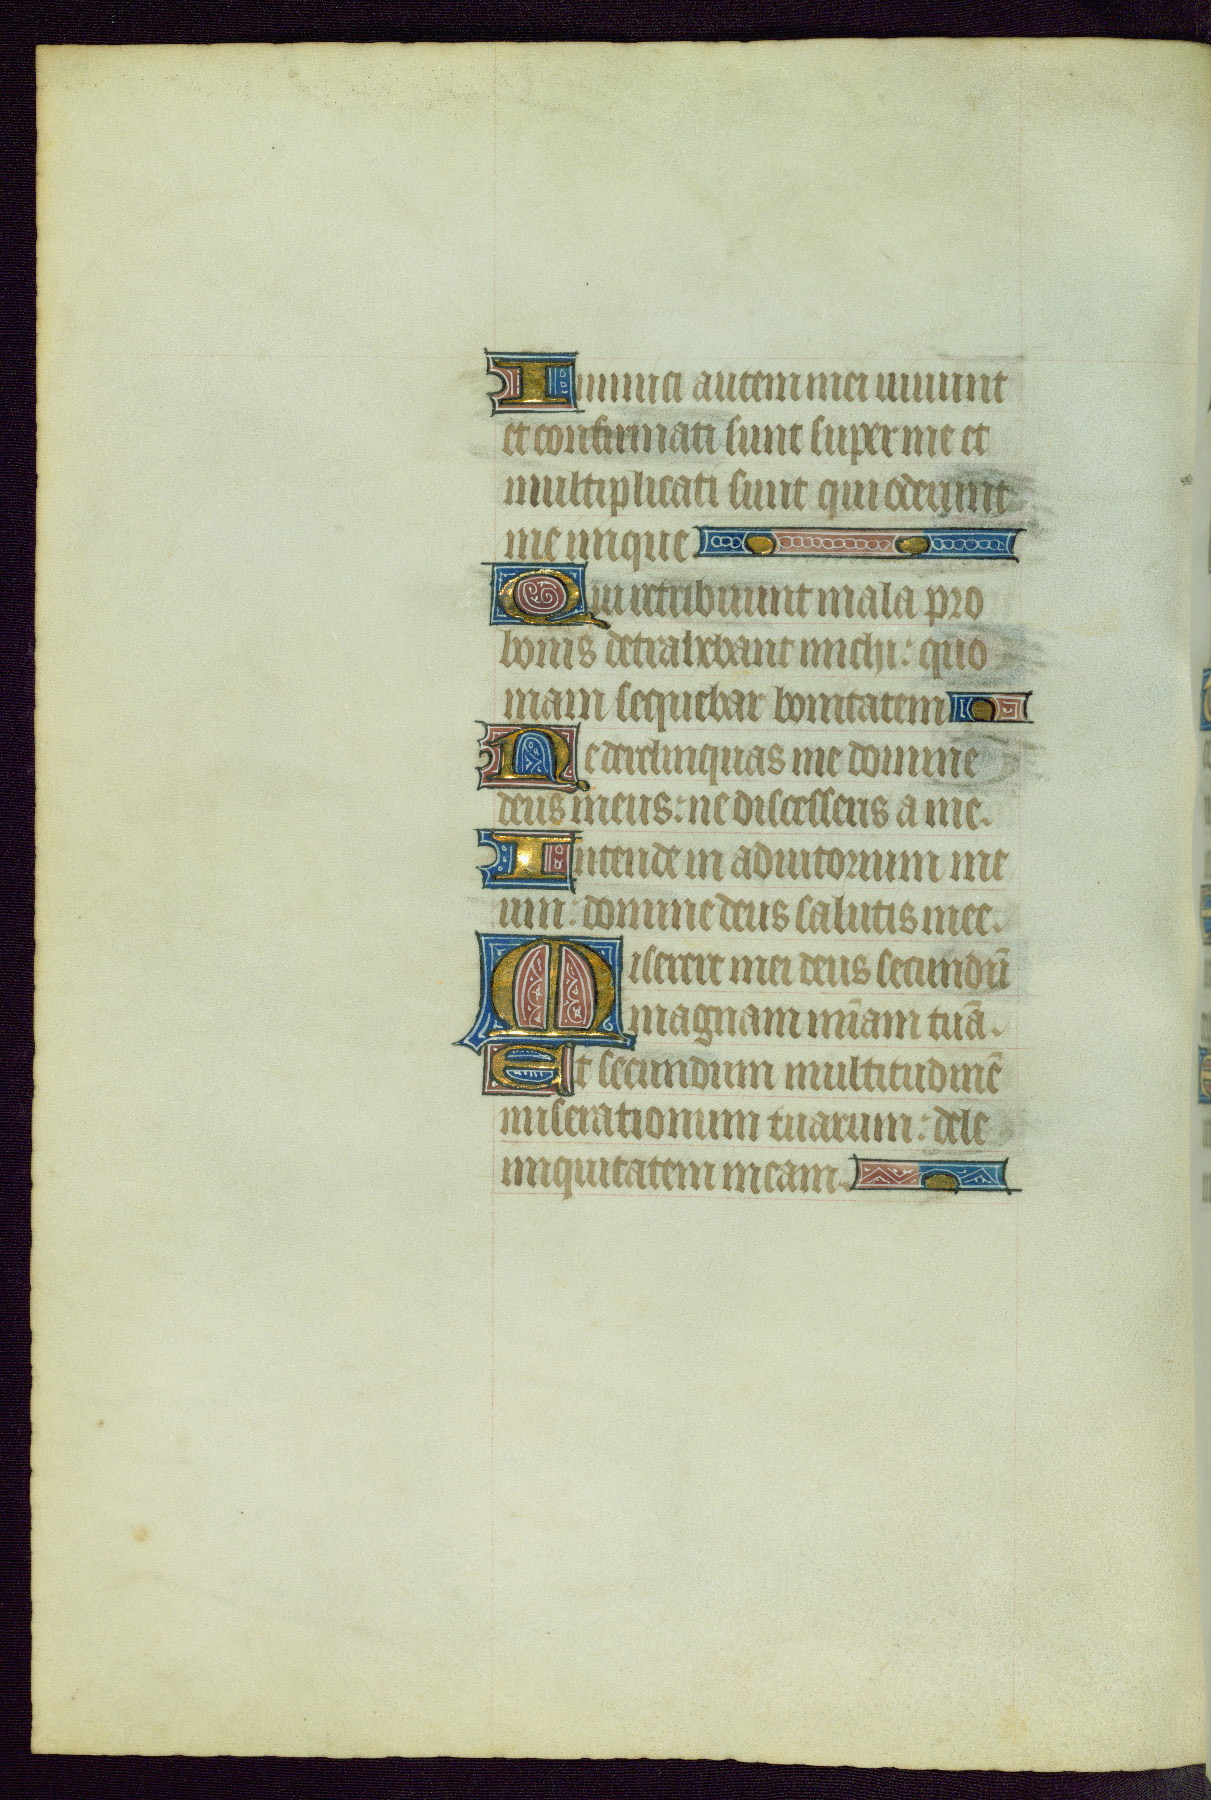 Inimici autem mei uiuunt
et confirmati sunt super me et
multiplicati sunt qui oderunt
me inique
Qui retribuunt mala pro
bonis detrahebant michi: quo
niam sequebar bonitatem
Ne derelinquas me domine
deus meus: ne discesseris a me.
Intende in adiutorium me
um: domine deus salutis mee.
Miserere mei deus secundū
magnam mīam tuā.
Et secundum multitudinē
miserationum tuarum: dele
iniquitatem meam.